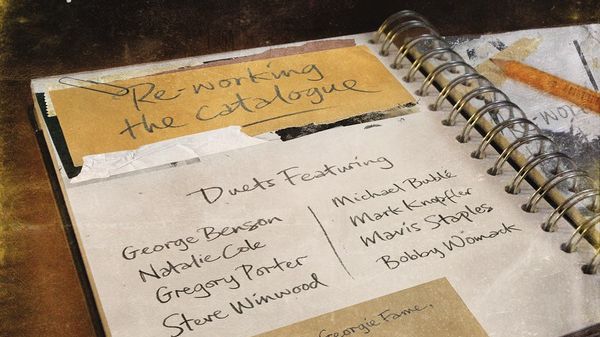 Re-working
the catalogue
Duets Featuring
George Benson
Natalie Cole
Gregory Porter
Steve Winwood
Michael Bublé
Mark Knopfler
Mavis Staples
Bobby Womack
Georgie Fame,
RE-WOR